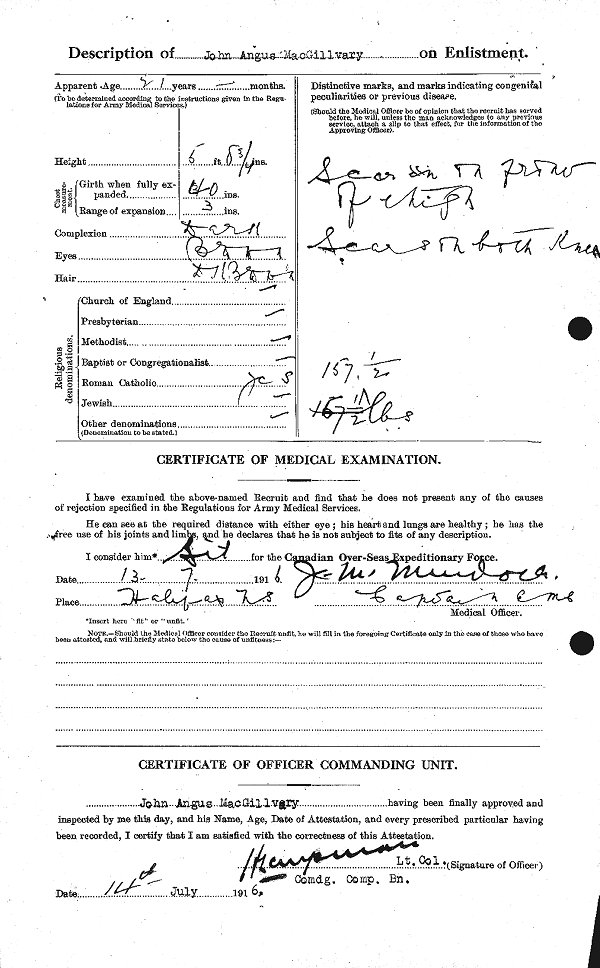 Description of John Angus MacGillvary on Enlistment.
Apparent Age 21 years — months.
(To be determined according to the instructions given in the Regulations for Army Medical Services.)
Height 5 ft. 8 3/4 ins.
Chest measurement.
Girth when fully expanded 40 ins.
Range of expansion 3 ins.
Complexion Dark
Eyes Brown
Hair D Brown
Religious denominations.
Church of England —
Presbyterian —
Methodist —
Baptist or Congregationalist —
Roman Catholic
Jewish —
Other denominations —
(Denomination to be stated.)
Distinctive marks, and marks indicating congenital
peculiarities or previous disease.
(Should the Medical Officer be of opinion that the recruit has served
before, he will, unless the man acknowledges to any previous
service, attach a slip to that effect, for the information of the
Approving Officer).
Scar on front
of thigh
Scars on both Knee
157. 1/2
157 1/2 lbs
CERTIFICATE OF MEDICAL EXAMINATION.
I have examined the above-named Recruit and find that he does not present any of the causes
of rejection specified in the Regulations for Army Medical Services.
He can see at the required distance with either eye; his heart and lungs are healthy; he has the
free use of his joints and limbs, and he declares that he is not subject to fits of any description.
I consider him* fit for the Canadian Over-Seas Expeditionary Force.
Date 13- 7 1916. J. M. Murdoch.
Place Halifax NS Captain
Medical Officer.
*Insert here "fit" or "unfit."
NOTE.—Should the Medical Officer consider the Recruit unfit, he will fill in the foregoing Certificate only in the case of those who have
been attested, and will briefly state below the cause of unfitness:—
CERTIFICATE OF OFFICER COMMANDING UNIT.
John Angus MacGillvary having been finally approved and
inspected by me this day, and his Name, Age, Date of Attestation, and every prescribed particular having
been recorded, I certify that I am satisfied with the correctness of this Attestation.
Lt. Col. (Signature of Officer)
Comdg. Comp. Bn.
Date 14th July 1916.